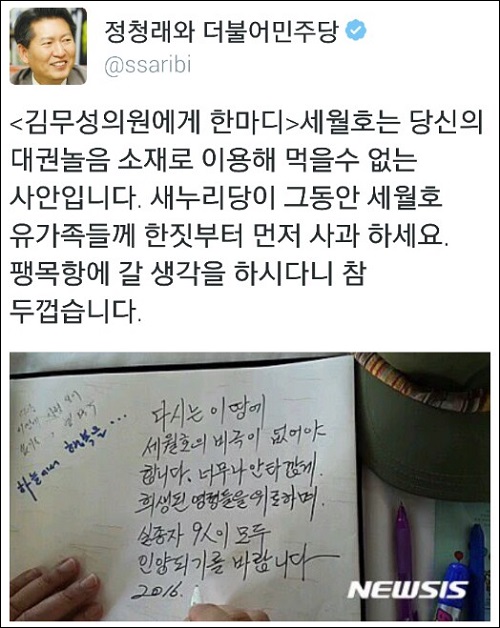 정청래와 더불어민주당
@ssaribi
<김무성의원에게 한마디>세월호는 당신의
대권놀음 소재로 이용해 먹을수 없는
사안입니다. 새누리당이 그동안 세월호
유가족들께 한짓부터 먼저 사과 하세요.
팽목항에 갈 생각을 하시다니 참
두껍습니다.
하늘에서 행복을...
다시는 이 땅에
세월호의 비극이 없어야
합니다. 너무나 안타깝게
희생된 영령들을 위로하며
실종자 9人이 모두
인양되기를 바랍니다
2016.
NEWSIS